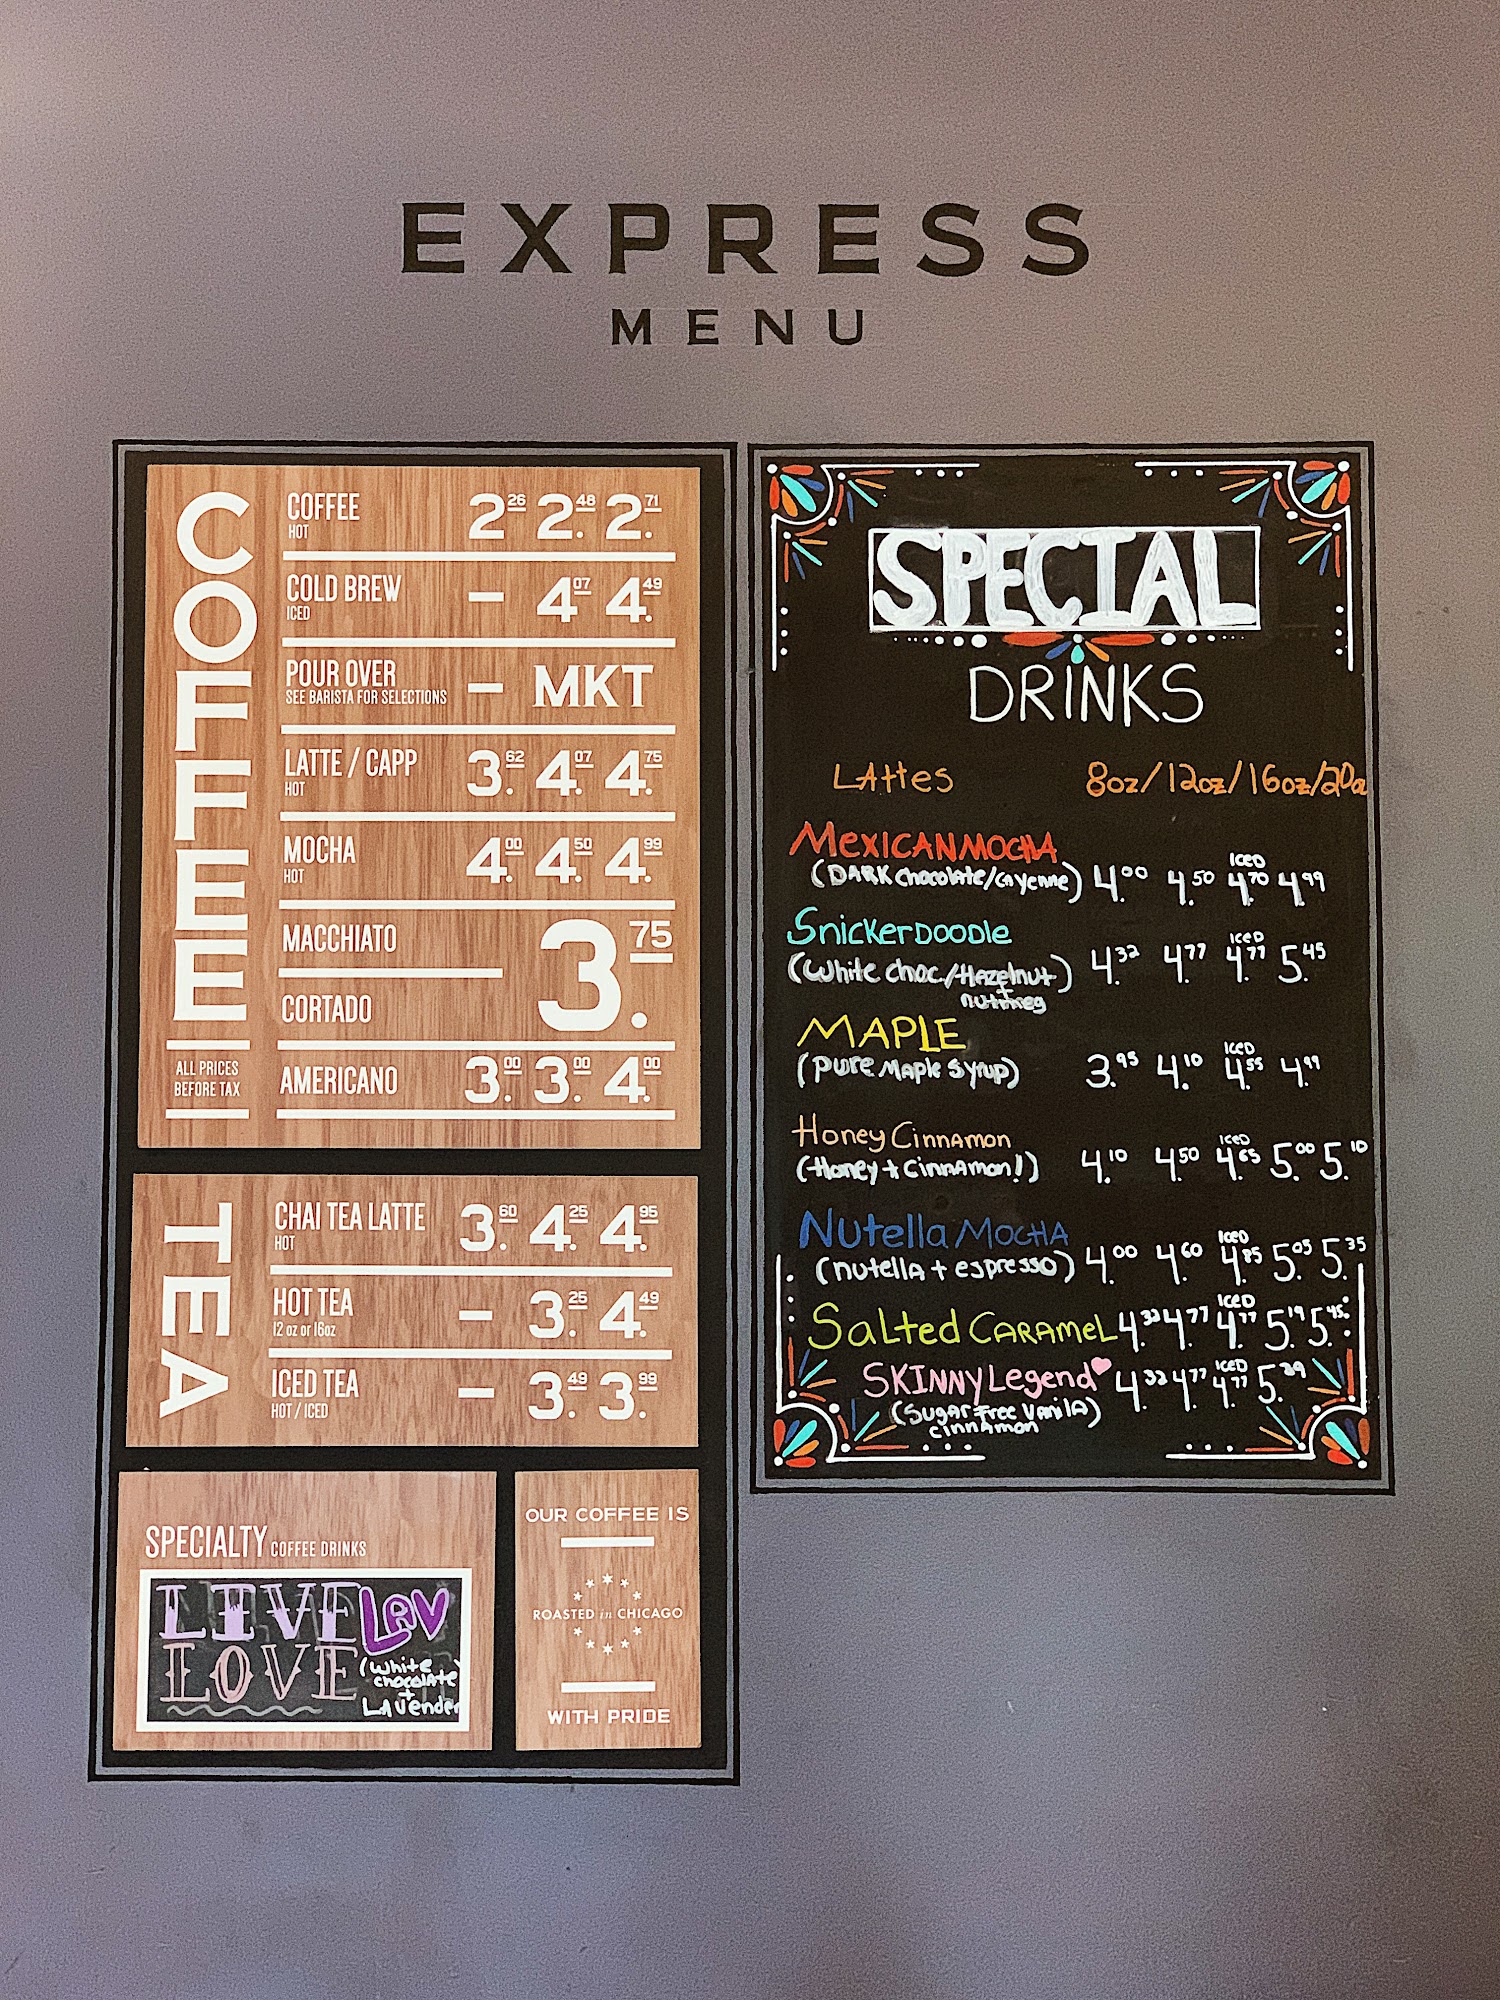 EXPRESS
MENU
COFFEE
COFFEE 2.26 2.48 2.71
HOT
COLD BREW – 4.07 4.49
ICED
POUR OVER – MKT
SEE BARISTA FOR SELECTIONS
LATTE / CAPP 3.62 4.07 4.75
HOT
MOCHA 4.00 4.50 4.99
HOT
MACCHIATO 3.75
CORTADO
AMERICANO 3.00 3.00 4.00
ALL PRICES
BEFORE TAX
TEA
CHAI TEA LATTE 3.60 4.25 4.95
HOT
HOT TEA – 3.25 4.49
12 oz or 16oz
ICED TEA – 3.49 3.99
HOT / ICED
SPECIALTY COFFEE DRINKS
LIVE LAV
LOVE (white
chocolate
+
LAvender
OUR COFFEE IS
ROASTED in CHICAGO
WITH PRIDE
SPECIAL
DRINKS
LAttes 8oz/12oz/16oz/20oz
MexicAN MOCHA
(DARK chocolate/cayenne) 4.00 4.50 ICED 4.70 4.99
SnickerDOODle
(white choc/Hazelnut) 4.32 4.77 ICED 4.77 5.45
+
nutmeg
MAPLE
(pure Maple syrup) 3.95 4.10 ICED 4.55 4.99
Honey Cinnamon
(Honey + cinnamon!) 4.10 4.50 ICED 4.65 5.00 5.10
Nutella MOCHA
(nutella + espresso) 4.00 4.60 ICED 4.85 5.05 5.35
Salted CARAMEL 4.32 4.77 ICED 4.77 5.19 5.45
SKINNY Legend 4.32 4.77 ICED 4.77 5.29
(Sugar Free VanilA)
cinnAmon